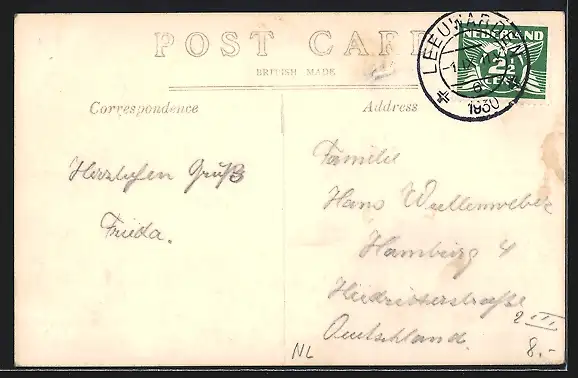 POST CARD
BRITISH MADE
Correspondence
Address
LEEUWARDEN
NEDERLAND
2½
CENT
1930
Herzlichen Gruß
Frieda.
Familie
Hans Wullenweber
Hamburg 4
Deutschland.
2 III
NL
8.-